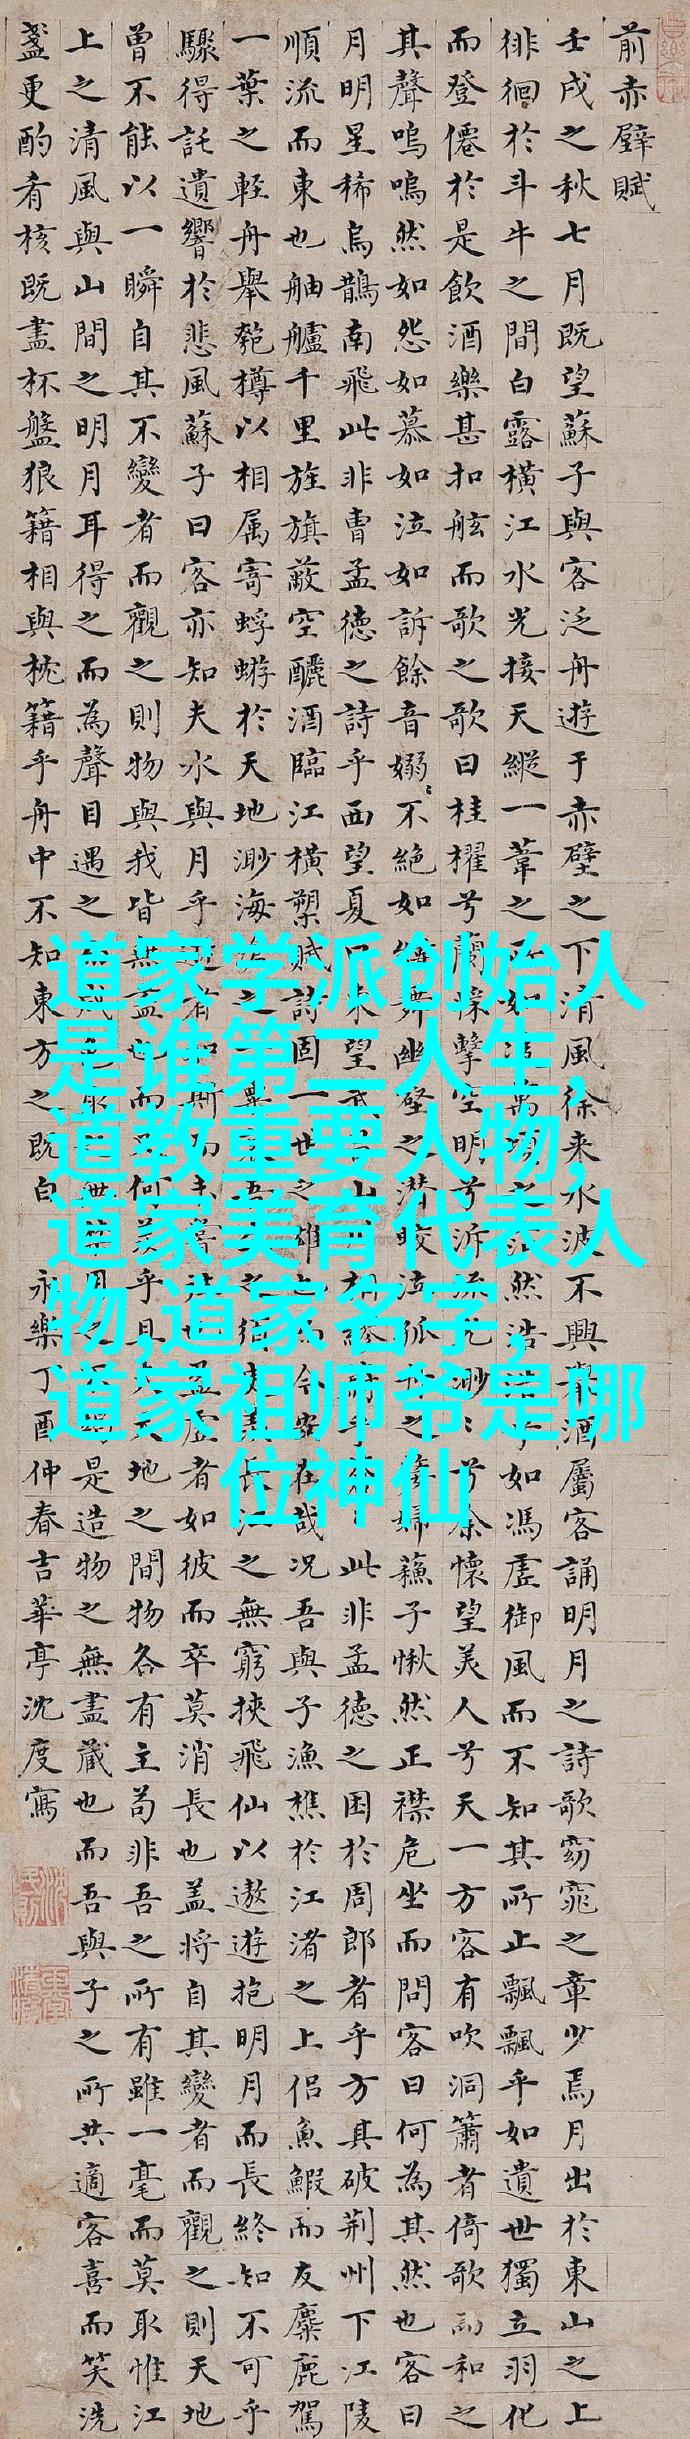 前赤壁賦
壬戌之秋七月既望蘇子與客泛舟遊于赤壁之下清風徐来水波不興舉酒屬客誦明月之詩歌窈窕之章少焉月出於東山之上
徘徊於斗牛之間白露橫江水光接天縱一葦之所如萬頃之然浩乎如馮虛御風而不知其所止飄飄乎如遺世獨立羽化
而登僊於是飲酒樂甚扣舷而歌之歌曰桂櫂兮蘭槳擊空明兮泝流光渺〻兮余懷望美人兮天一方客有吹洞簫者倚歌而和之
其聲嗚嗚然如怨如慕如泣如訴餘音嫋〻不絕如縷舞幽壑之潛蛟泣孤舟之嫠婦蘓子愀然正襟危坐而問客曰何為其然也客曰
月明星稀烏鵲南飛此非曹孟德之詩乎西望夏口東望武昌山川相繆鬱乎此非孟德之困於周郎者乎方其破荊州下江陵
順流而東也舳艫千里旌旗蔽空釃酒臨江橫槊賦詩固一世之雄也而今安在哉况吾與子漁樵於江渚之上侶魚鰕而友麋鹿駕
一葉之輕舟舉匏樽以相属寄蜉蝣於天地渺海之一粟吾之須羨長江之無窮挾飛仙以遨遊抱明月而長終知不可乎
驟得託遺響於悲風蘇子曰客亦知夫水與月乎逝者如斯而未嘗往也盈虛者如彼而卒莫消長也盖將自其變者而觀之則天地
曾不能以一瞬自其不變者而觀之則物與我皆無盡也而又何羨乎且夫天地之間物各有主苟非吾之所有雖一毫而莫取惟江
上之清風與山間之明月耳得之而為聲目遇之而成色取之無用之是造物之無盡藏也而吾與子之所共適客喜而笑洗
盞更酌肴核既盡杯盤狼籍相與枕籍乎舟中不知東方之既白 永樂丁酉仲春吉華亭沈度寫
道家学派创始人
是谁第二人生,
道教重要人物,
道家美育代表人
物,道家名字,
道家祖师爷是哪
位神仙